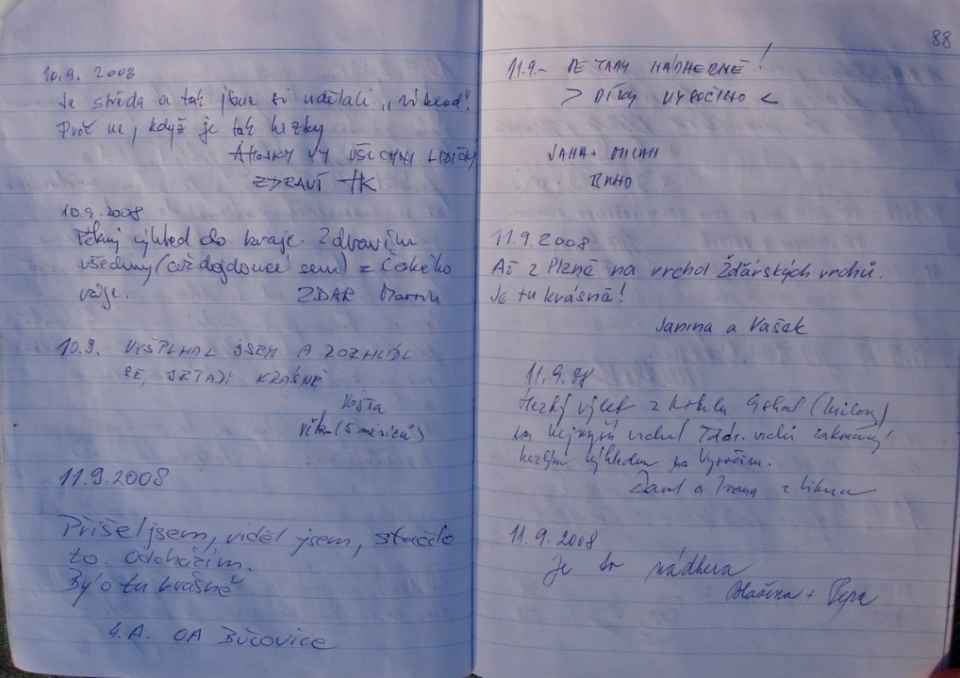 10.9. 2008
Je středa a tak jsme si udělali „víkend“.
Proč ne, když je tak hezky
AHOJKY VY VŠICHNI LIDIČKY
ZDRAVÍ HK
10.9.2008
Pěkný výhled do kraje. Zdravím
všechny (což dojdouce sem) z Českého
ráje. ZDAR Martin
10.9. VYŠPLHAL JSEM A ROZHLÍDL
SE, JE TADY KRÁSNĚ
Vojta
(5 měsíců)
11.9.2008
Přišel jsem, viděl jsem, stačilo
to. Odcházím.
Bylo tu krásně
4.A. OA Bučovice
88
11.9.- JE TADY NÁDHERNĚ!
> DÍKY VYSOČINO <
JANA + MILAN
BRNO
11.9.2008
Až z Plzně na vrchol Žďárských vrchů.
Je tu krásně!
Janina a Vašek
11.9.08
Hezký výlet z hotelu
na nejvyšší vrchol Žďár. vrchů zakončený
hezkým výhledem na Vysočinu.
a Ivana z
11.9.2008
je to nádhera
Blažena + Pepa